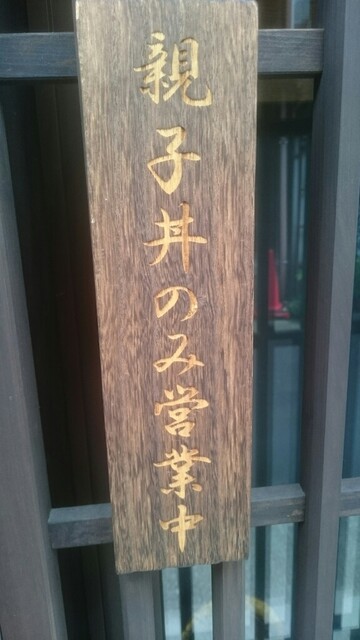 親子丼のみ営業中